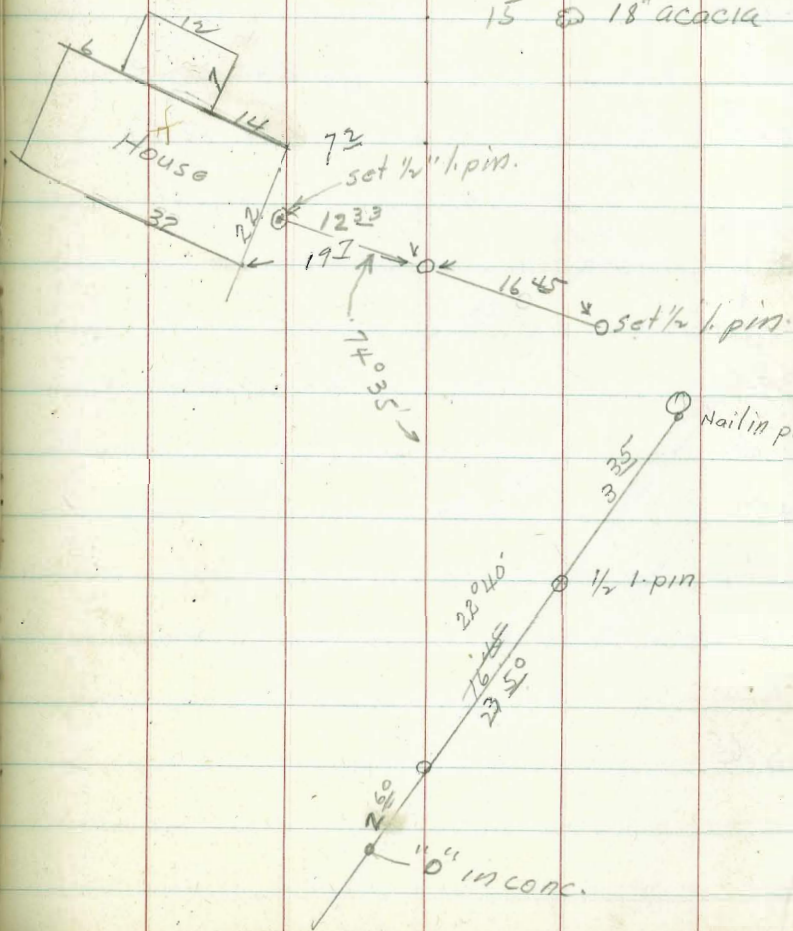 15 18" acacia
12
6
7
14
House
7 2
set ½" I. pin.
22
32
12 33
19 1
16 45
set ½ I. pin.
74° 35'
Nail in
3 35
½ I. pin
22° 40'
23 50
2 61
"O" in conc.